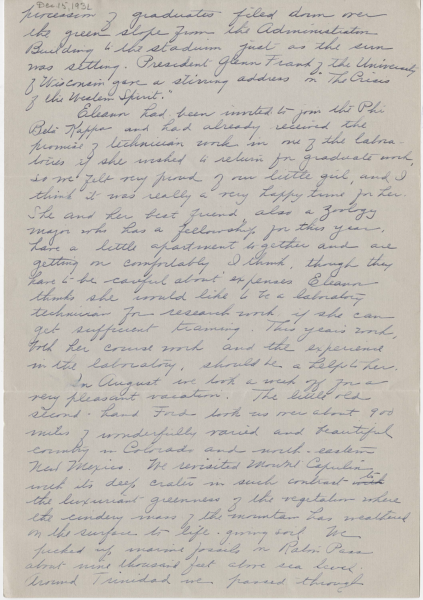 Dec 15, 1932
procession of graduates filed down over
the green slope from the Administration
Building to the stadium just as the sun
was setting. President Glenn Frank of the University
of Wisconsin gave a stirring address on "The Crisis
of the Western Spirit."
Eleanor had been invited to join the Phi
Beta Kappa and had already received the
promise of technician work in one of the labora-
tories if she wished to return for graduate work,
so we felt very proud of our little girl, and I
think it was really a very happy time for her.
She and her best friend, also a Zoology
major who has a fellowship for this year,
have a little apartment together and are
getting on comfortably I think, though they
have to be careful about expenses. Eleanor
thinks she would like to be a laboratory
technician for research work if she can
get sufficient training. This year's work,
both her course work and the experience
in the laboratory, should be a help to her.
In August we took a week off for a
very pleasant vacation. The little old
second-hand Ford took us over about 900
miles of wonderfully varied and beautiful
country in Colorado and north-eastern
New Mexico. We revisited Mount Capulin
with its deep crater in such contrast to
the luxuriant greenness of the vegetation where
the cindery mass of the mountain has weathered
on the surface to life-giving soil. We
picked up marine fossils on Raton Pass
about nine thousand feet above sea level.
Around Trinidad we passed through